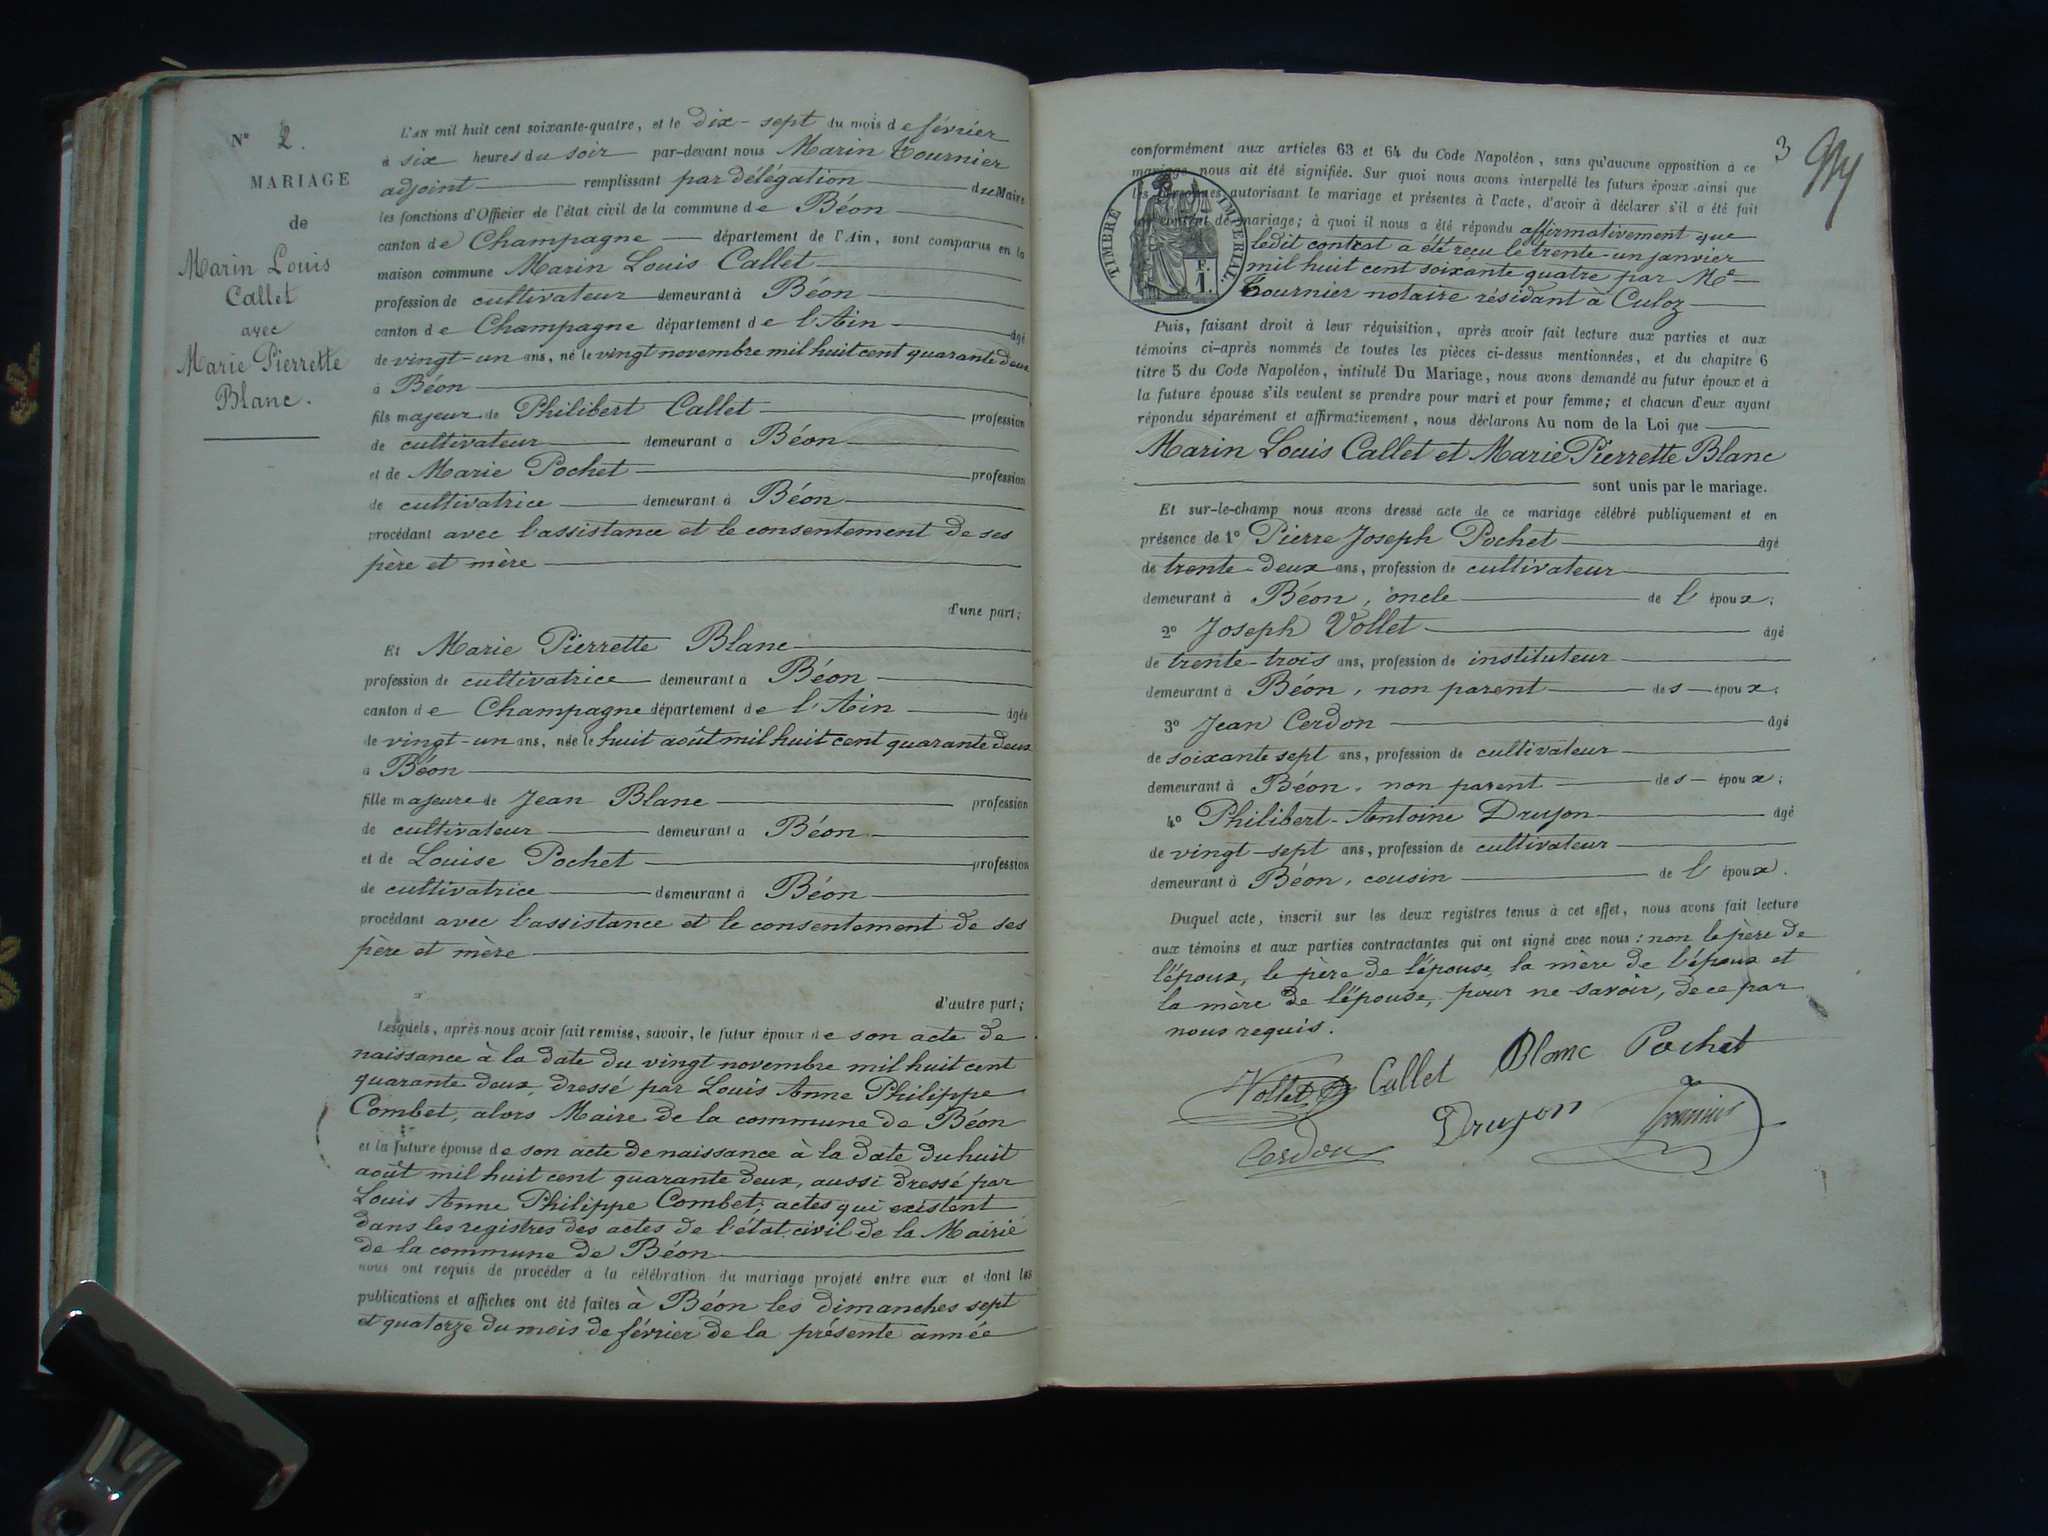 N° 2.
MARIAGE
de
Marin Louis
Callet
avec
Marie Pierrette
Blanc.
L'AN mil huit cent soixante-quatre, et le dix-sept du mois de février
à six heures du soir par-devant nous Marin Tournier
adjoint remplissant par délégation du Maire
les fonctions d'Officier de l'état civil de la commune de Béon
canton de Champagne département de l'Ain, sont comparus en la
maison commune Marin Louis Callet
profession de cultivateur demeurant à Béon
canton de Champagne département de l'Ain âgé
de vingt-un ans, né le vingt novembre mil huit cent quarante deux
à Béon
fils majeur de Philibert Callet profession
de cultivateur demeurant à Béon
et de Marie Pochet profession
de cultivatrice demeurant à Béon
procédant avec l'assistance et le consentement de ses
père et mère
d'une part;
Et Marie Pierrette Blanc
profession de cultivatrice demeurant à Béon
canton de Champagne département de l'Ain âgée
de vingt-un ans, née le huit août mil huit cent quarante deux
à Béon
fille majeure de Jean Blanc profession
de cultivateur demeurant à Béon
et de Louise Pochet profession
de cultivatrice demeurant à Béon
procédant avec l'assistance et le consentement de ses
père et mère
d'autre part;
Lesquels, après nous avoir fait remise, savoir, le futur époux de son acte de
naissance à la date du vingt novembre mil huit cent
quarante deux, dressé par Louis Anne Philippe
Combet, alors Maire de la commune de Béon
et la future épouse de son acte de naissance à la date du huit
août mil huit cent quarante deux, aussi dressé par
Louis Anne Philippe Combet; actes qui existent
dans les registres des actes de l'état civil de la Mairie
de la commune de Béon
nous ont requis de procéder à la célébration du mariage projeté entre eux et dont les
publications et affiches ont été faites à Béon les dimanches sept
et quatorze du mois de février de la présente année
3
conformément aux articles 63 et 64 du Code Napoléon, sans qu'aucune opposition à ce
mariage nous ait été signifiée. Sur quoi nous avons interpellé les futurs époux ainsi que
les personnes autorisant le mariage et présentes à l'acte, d'avoir à déclarer s'il a été fait
un contrat de mariage; à quoi il nous a été répondu affirmativement que
ledit contrat a été reçu le trente-un janvier
mil huit cent soixante quatre par Me
Tournier notaire résidant à Culoz
TIMBRE IMPERIAL.
F.
1.
Puis, faisant droit à leur réquisition, après avoir fait lecture aux parties et aux
témoins ci-après nommés de toutes les pièces ci-dessus mentionnées, et du chapitre 6
titre 5 du Code Napoléon, intitulé Du Mariage, nous avons demandé au futur époux et à
la future épouse s'ils veulent se prendre pour mari et pour femme; et chacun d'eux ayant
répondu séparément et affirmativement, nous déclarons Au nom de la Loi que
Marin Louis Callet et Marie Pierrette Blanc
sont unis par le mariage.
Et sur-le-champ nous avons dressé acte de ce mariage célébré publiquement et en
présence de 1° Pierre Joseph Pochet âgé
de trente-deux ans, profession de cultivateur
demeurant à Béon, oncle de l'époux;
2° Joseph Vollet âgé
de trente-trois ans, profession de instituteur
demeurant à Béon, non parent des époux;
3° Jean Cerdon âgé
de soixante sept ans, profession de cultivateur
demeurant à Béon, non parent des époux;
4° Philibert-Antoine Druyon âgé
de vingt-sept ans, profession de cultivateur
demeurant à Béon, cousin de l'époux.
Duquel acte, inscrit sur les deux registres tenus à cet effet, nous avons fait lecture
aux témoins et aux parties contractantes qui ont signé avec nous: non le père de
l'époux, le père de l'épouse, la mère de l'époux et
la mère de l'épouse, pour ne savoir, de ce par
nous requis.
Vollet Callet Blanc Pochet
Cerdon Druyon